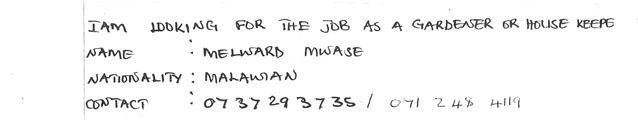 IAM LOOKING FOR THE JOB AS A GARDENER OR HOUSE KEEPE
NAME : MELWARD MWASE
NATIONALITY : MALAWIAN
CONTACT : 0737293735 / 071 248 4119